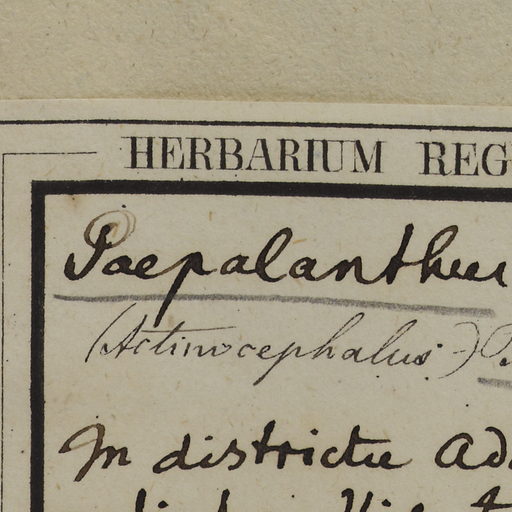 HERBARIUM REG
Paepalanthus
(Actinocephalus)
In districtu Ad